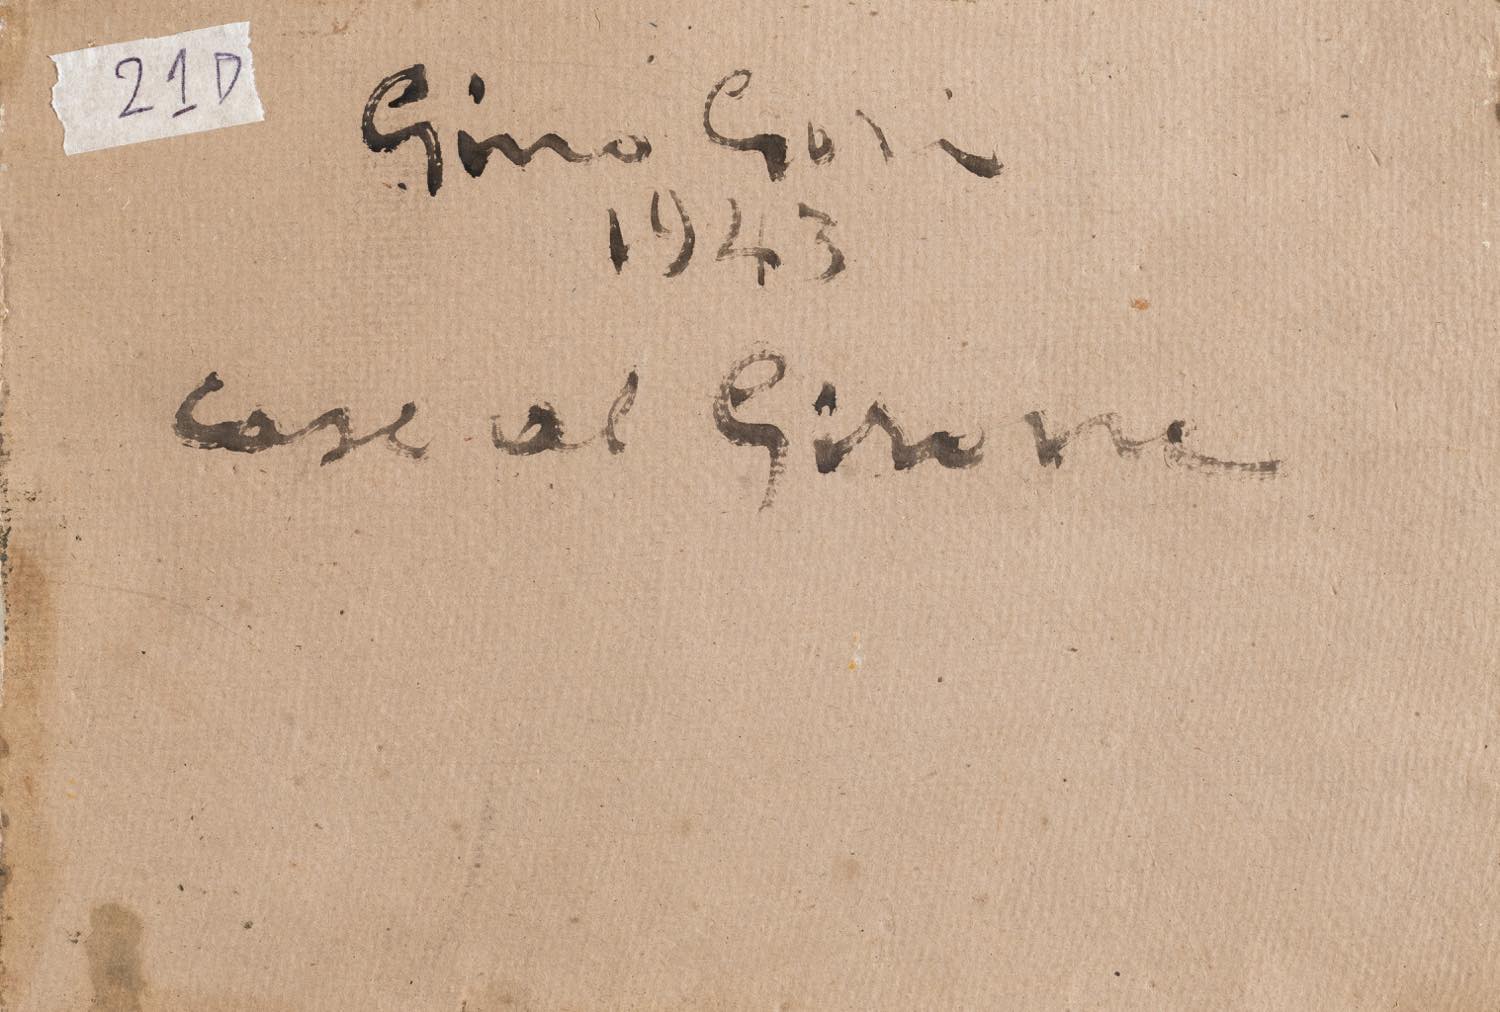 21D
Gino Gori
1943
Case al Girone